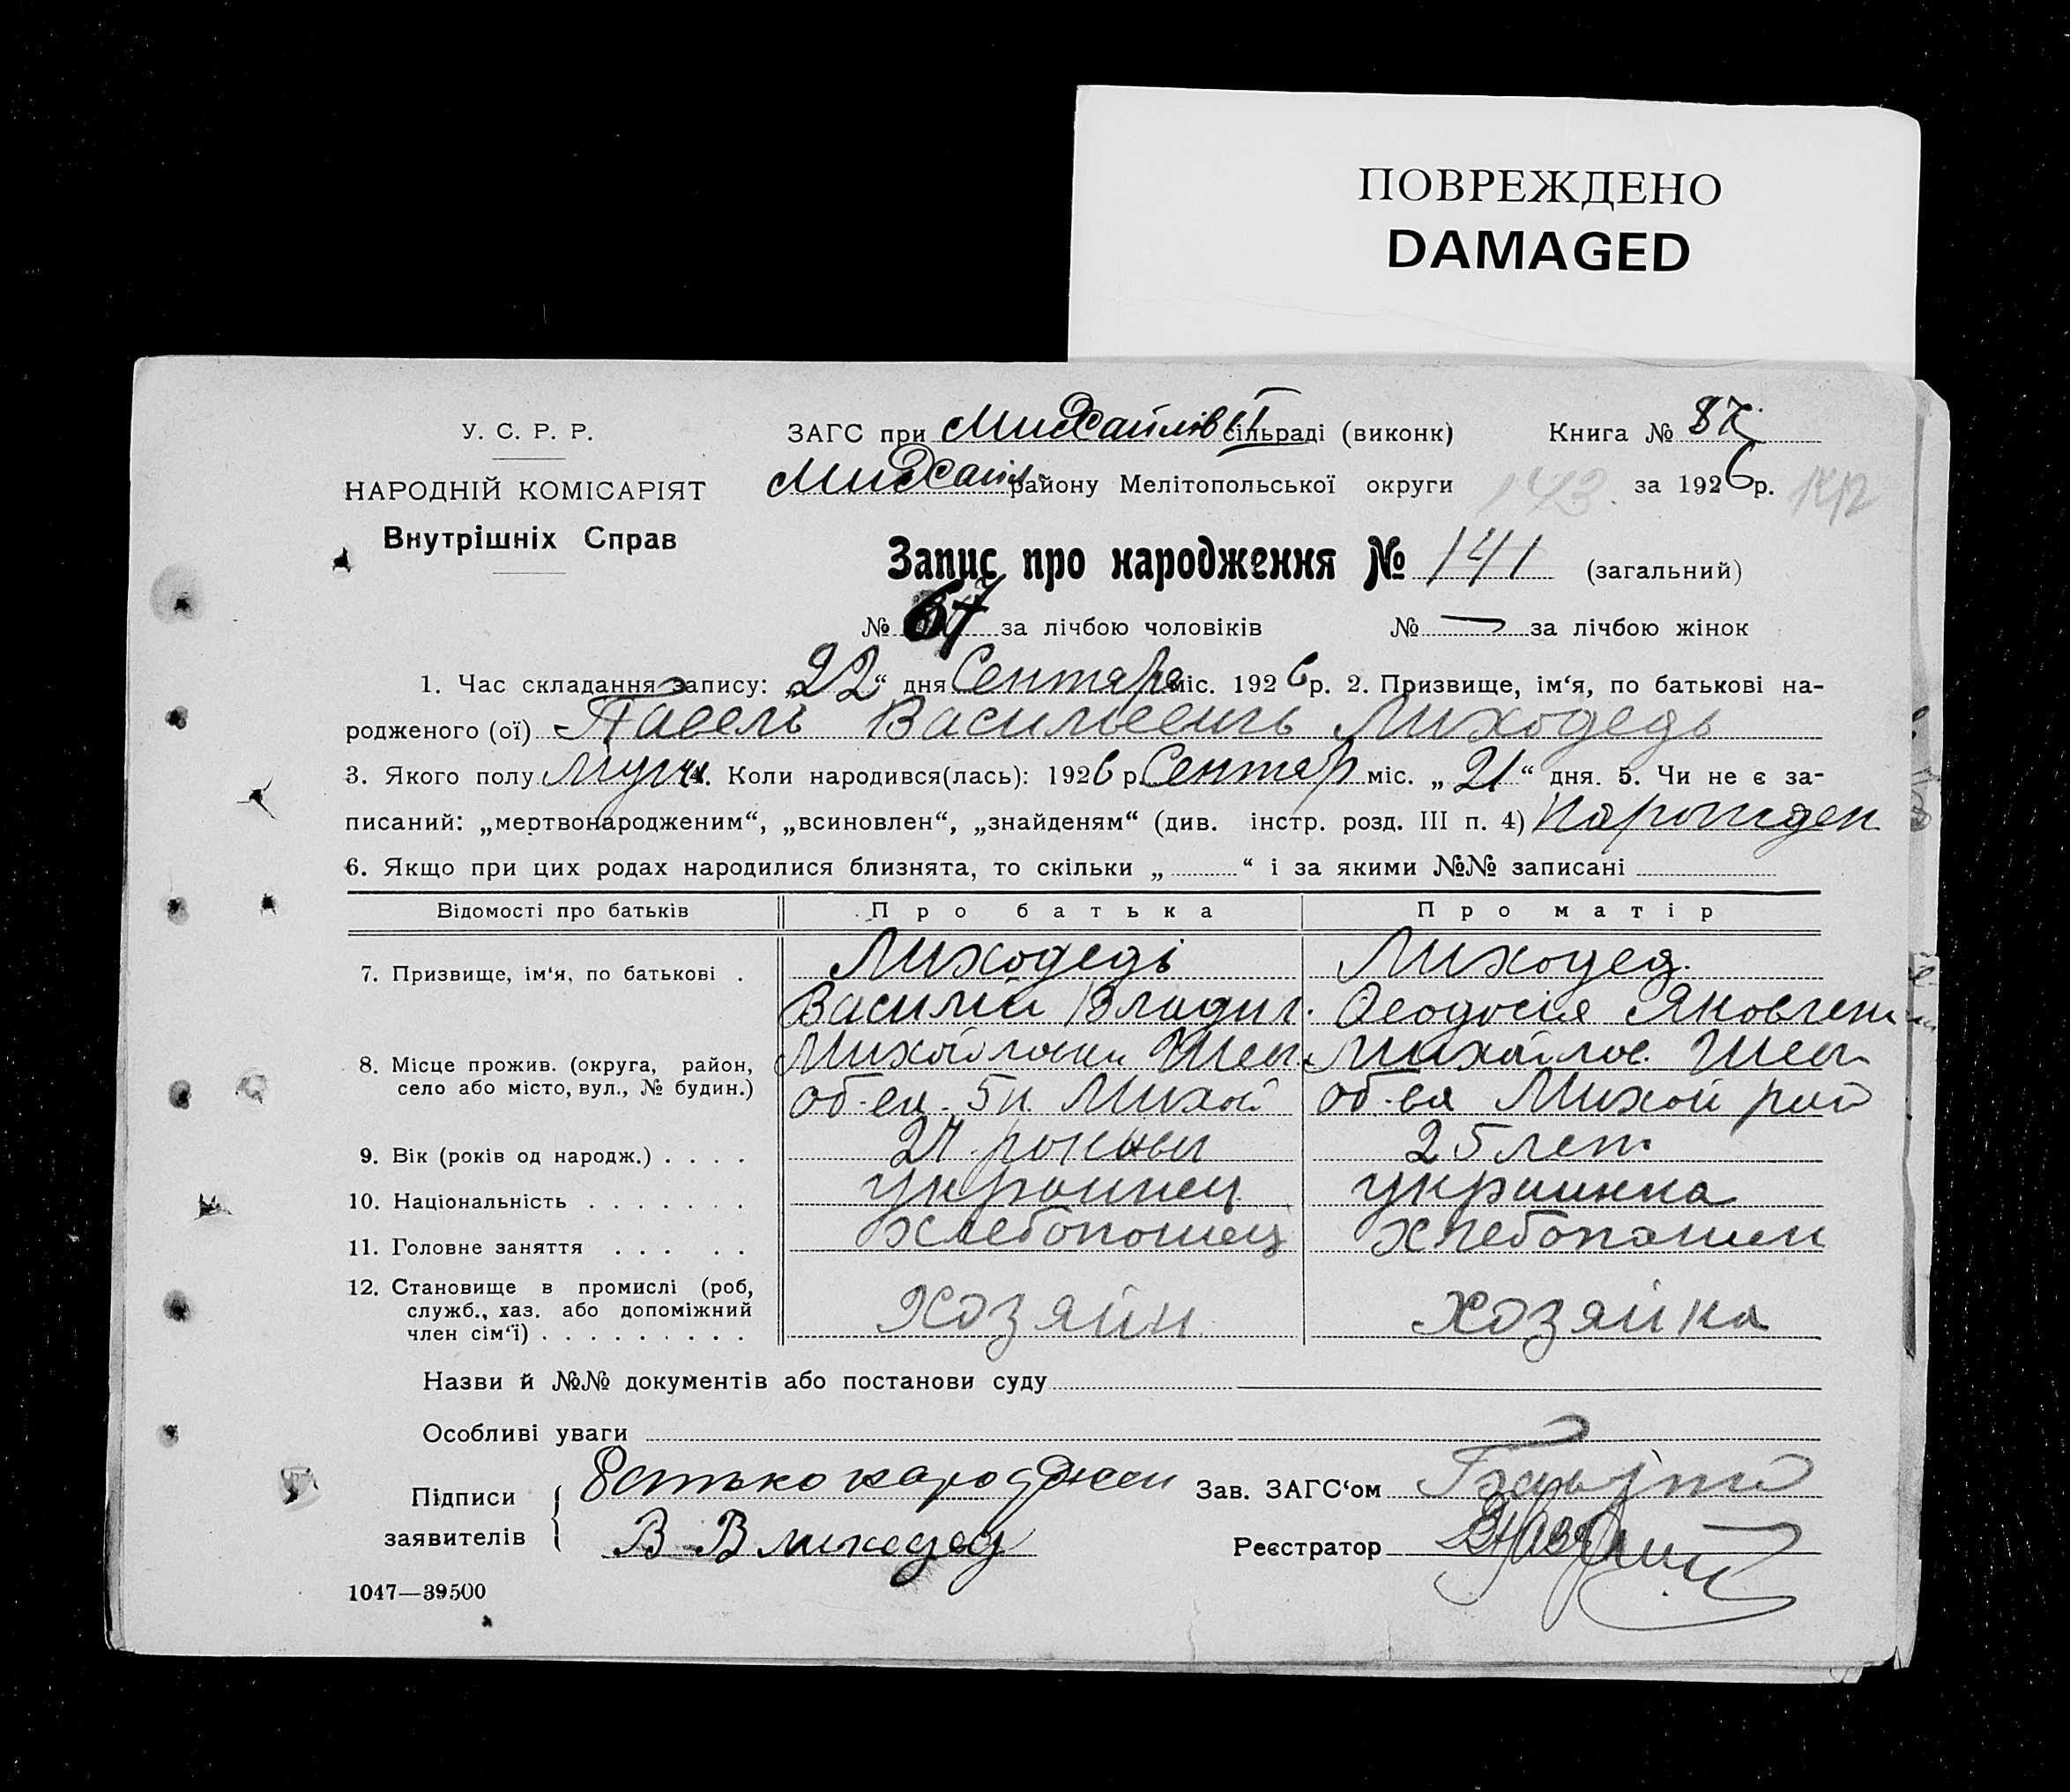 ПОВРЕЖДЕНО
DAMAGED
У. С. Р. Р.
НАРОДНІЙ КОМІСАРІЯТ
Внутрішніх Справ
ЗАГС при Михайлівт сільраді (виконк) Книга № 87
Михайл району Мелітопольської округи 143. за 1926 р.
Запис про народження № 141 (загальний)
№ 67 за лічбою чоловіків № — за лічбою жінок
1. Час складання запису: „22“ дня Сентяр міс. 1926 р. 2. Призвище, ім‘я, по батькові на-
родженого (ої) Павель Васильевичь Лиходедь
3. Якого полу Мущ 4. Коли народився(лась): 1926 р. Сентяр міс. „21“ дня. 5. Чи не є за-
писаний: „мертвонародженим“, „всиновлен“, „знайденям“ (див. інстр. розд. III п. 4) Нарожден
6. Якщо при цих родах народилися близнята, то скільки „ “ і за якими №№ записані
Відомості про батьків Про батька Про матір
7. Призвище, ім‘я, по батькові . Лиходеді Лиходед.
Василий Владим. Феодосія Яковлен
8. Місце прожив. (округа, район, село або місто, вул., № будин.)
об-ва Михай рай
9. Вік (років од народж.) . . . . 27 25 лет
10. Національність . . . . . . . украинец украинка
11. Головне заняття . . . . . хлебопошец хлебопашец
12. Становище в промислі (роб, служб., хаз. або допоміжний член сім‘ї) . . . . . . . . . Хозяйн хозяйка
Назви й №№ документів або постанови суду
Особливі уваги
Підписи заявителів { батько народжен
В В лиходед
Зав. ЗАГС‘ом
Реєстратор
1047—39500